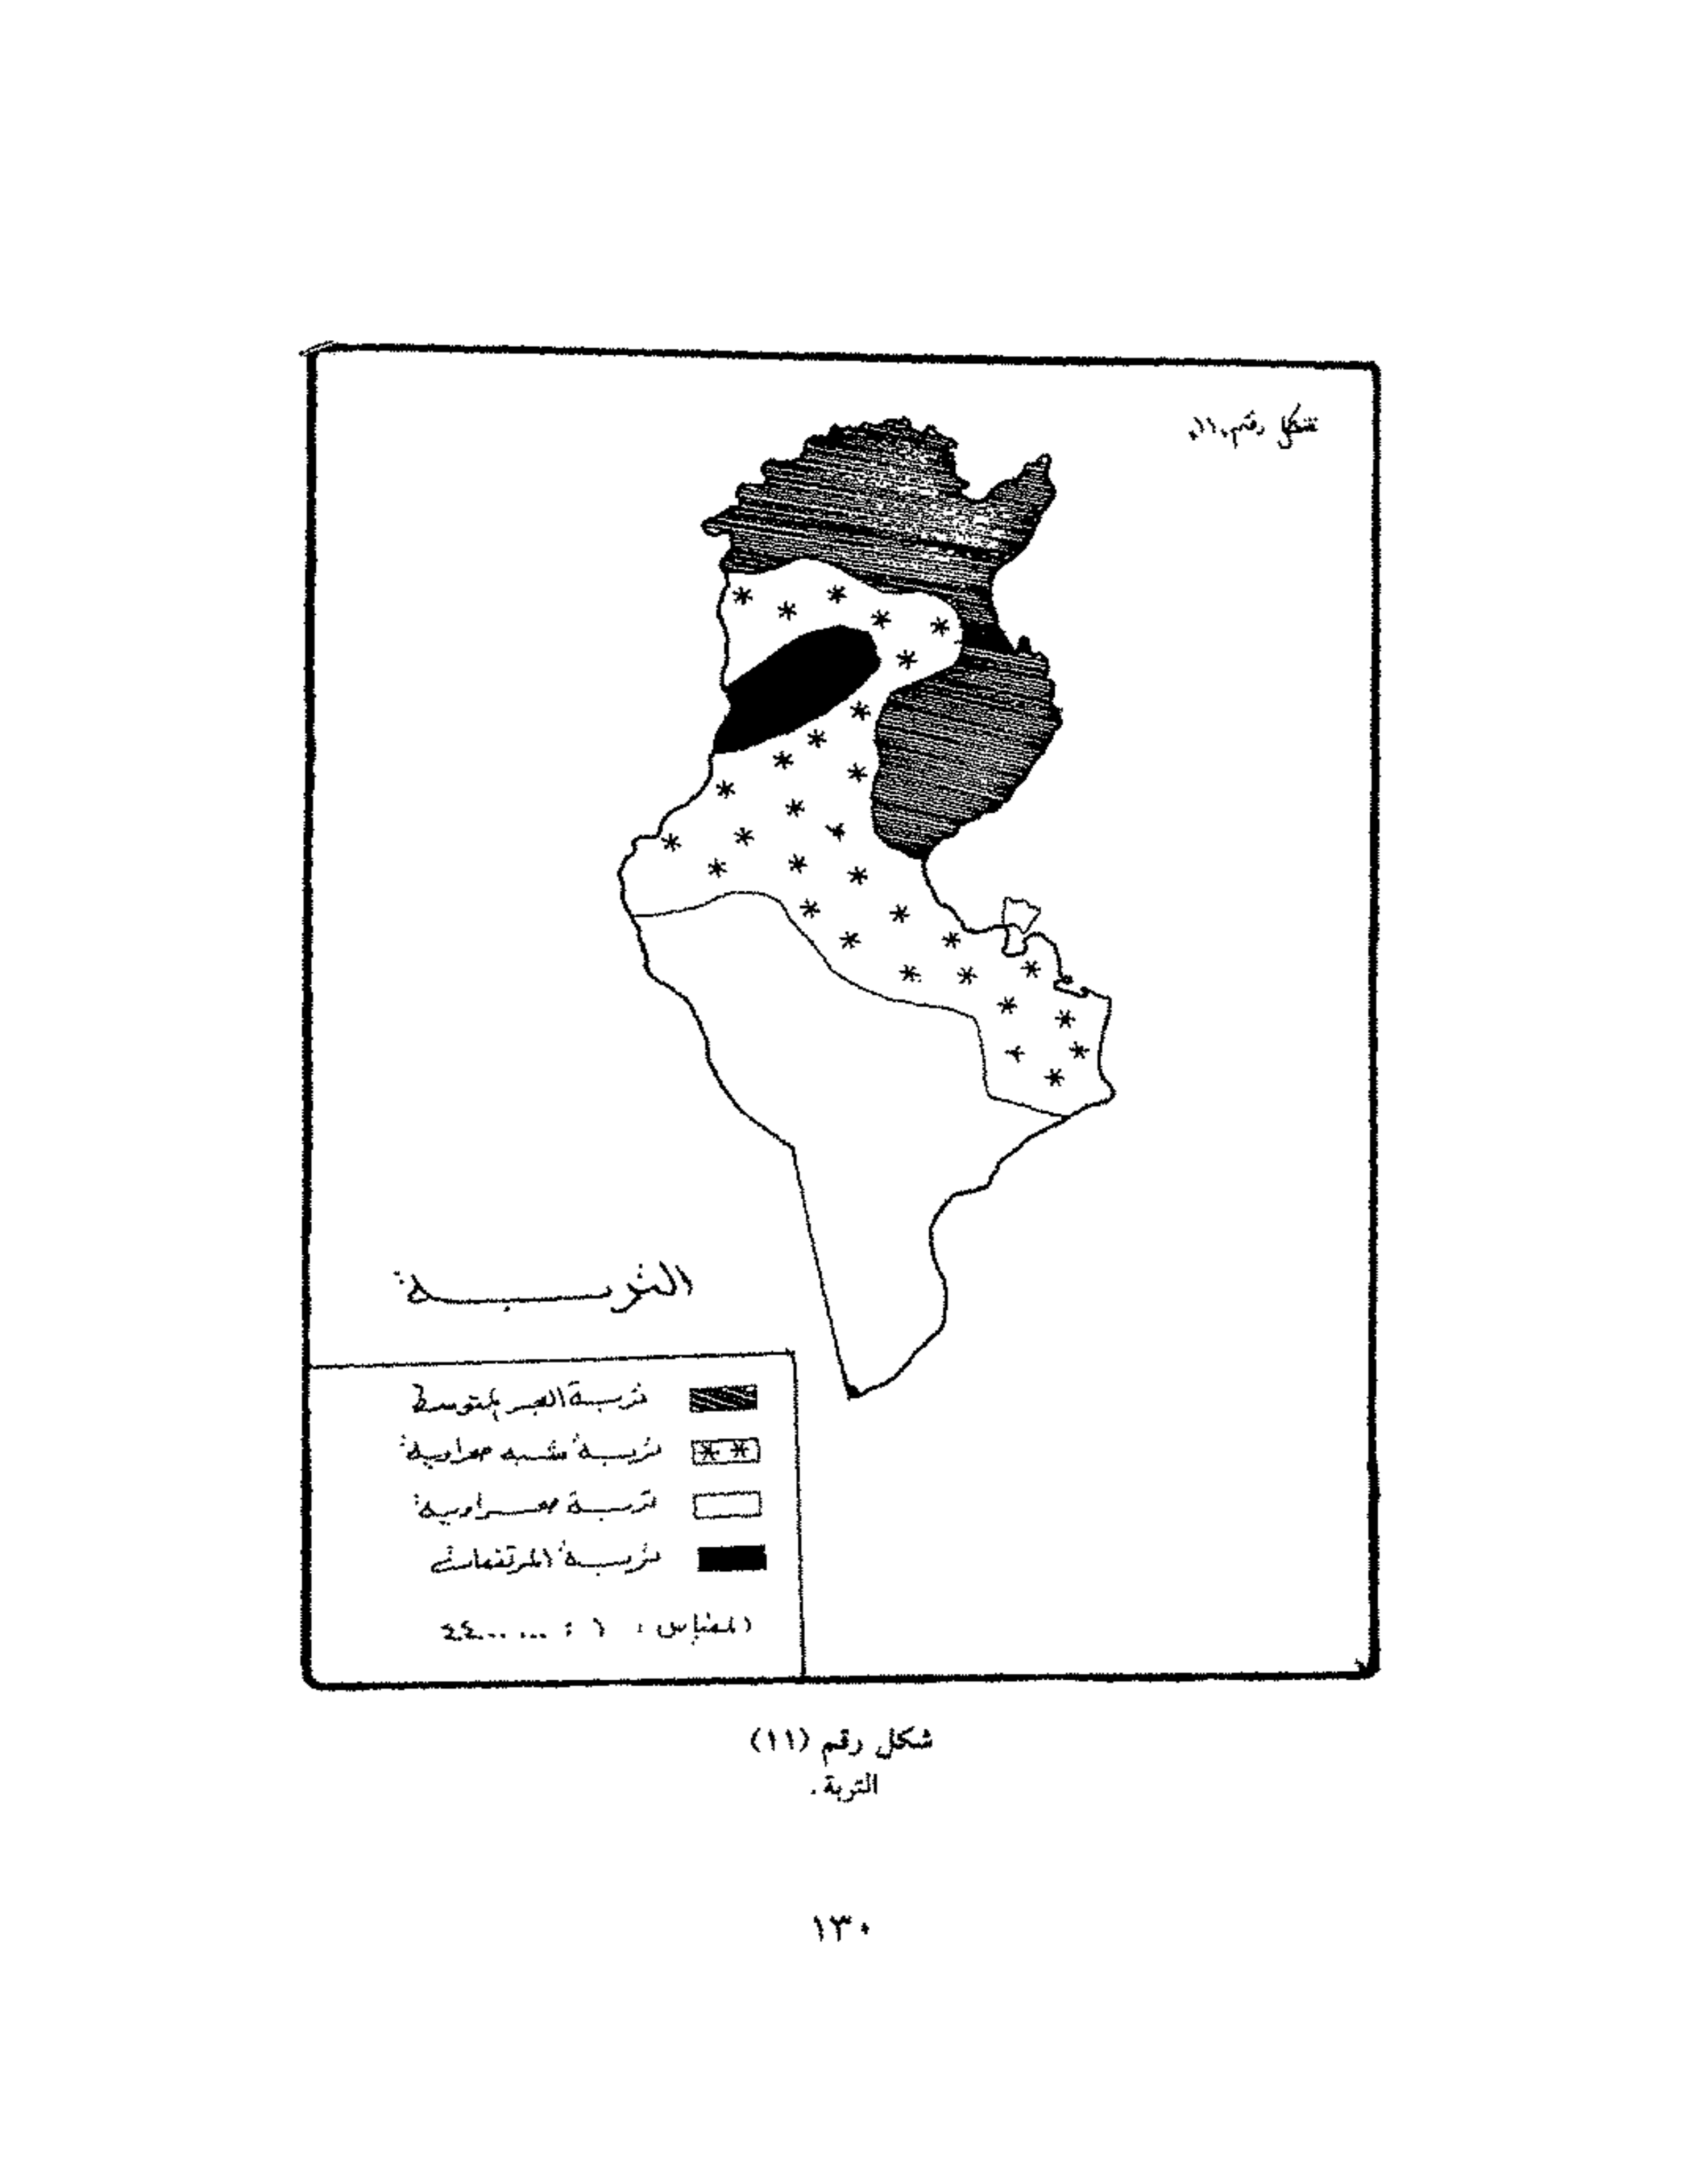 شكل رقم ١١
التربة
تربة البحر المتوسط
تربة شبه صحراوية
تربة صحراوية
تربة المرتفعات
المقياس : ١ :
شكل رقم (١١)
التربة .
١٣٠